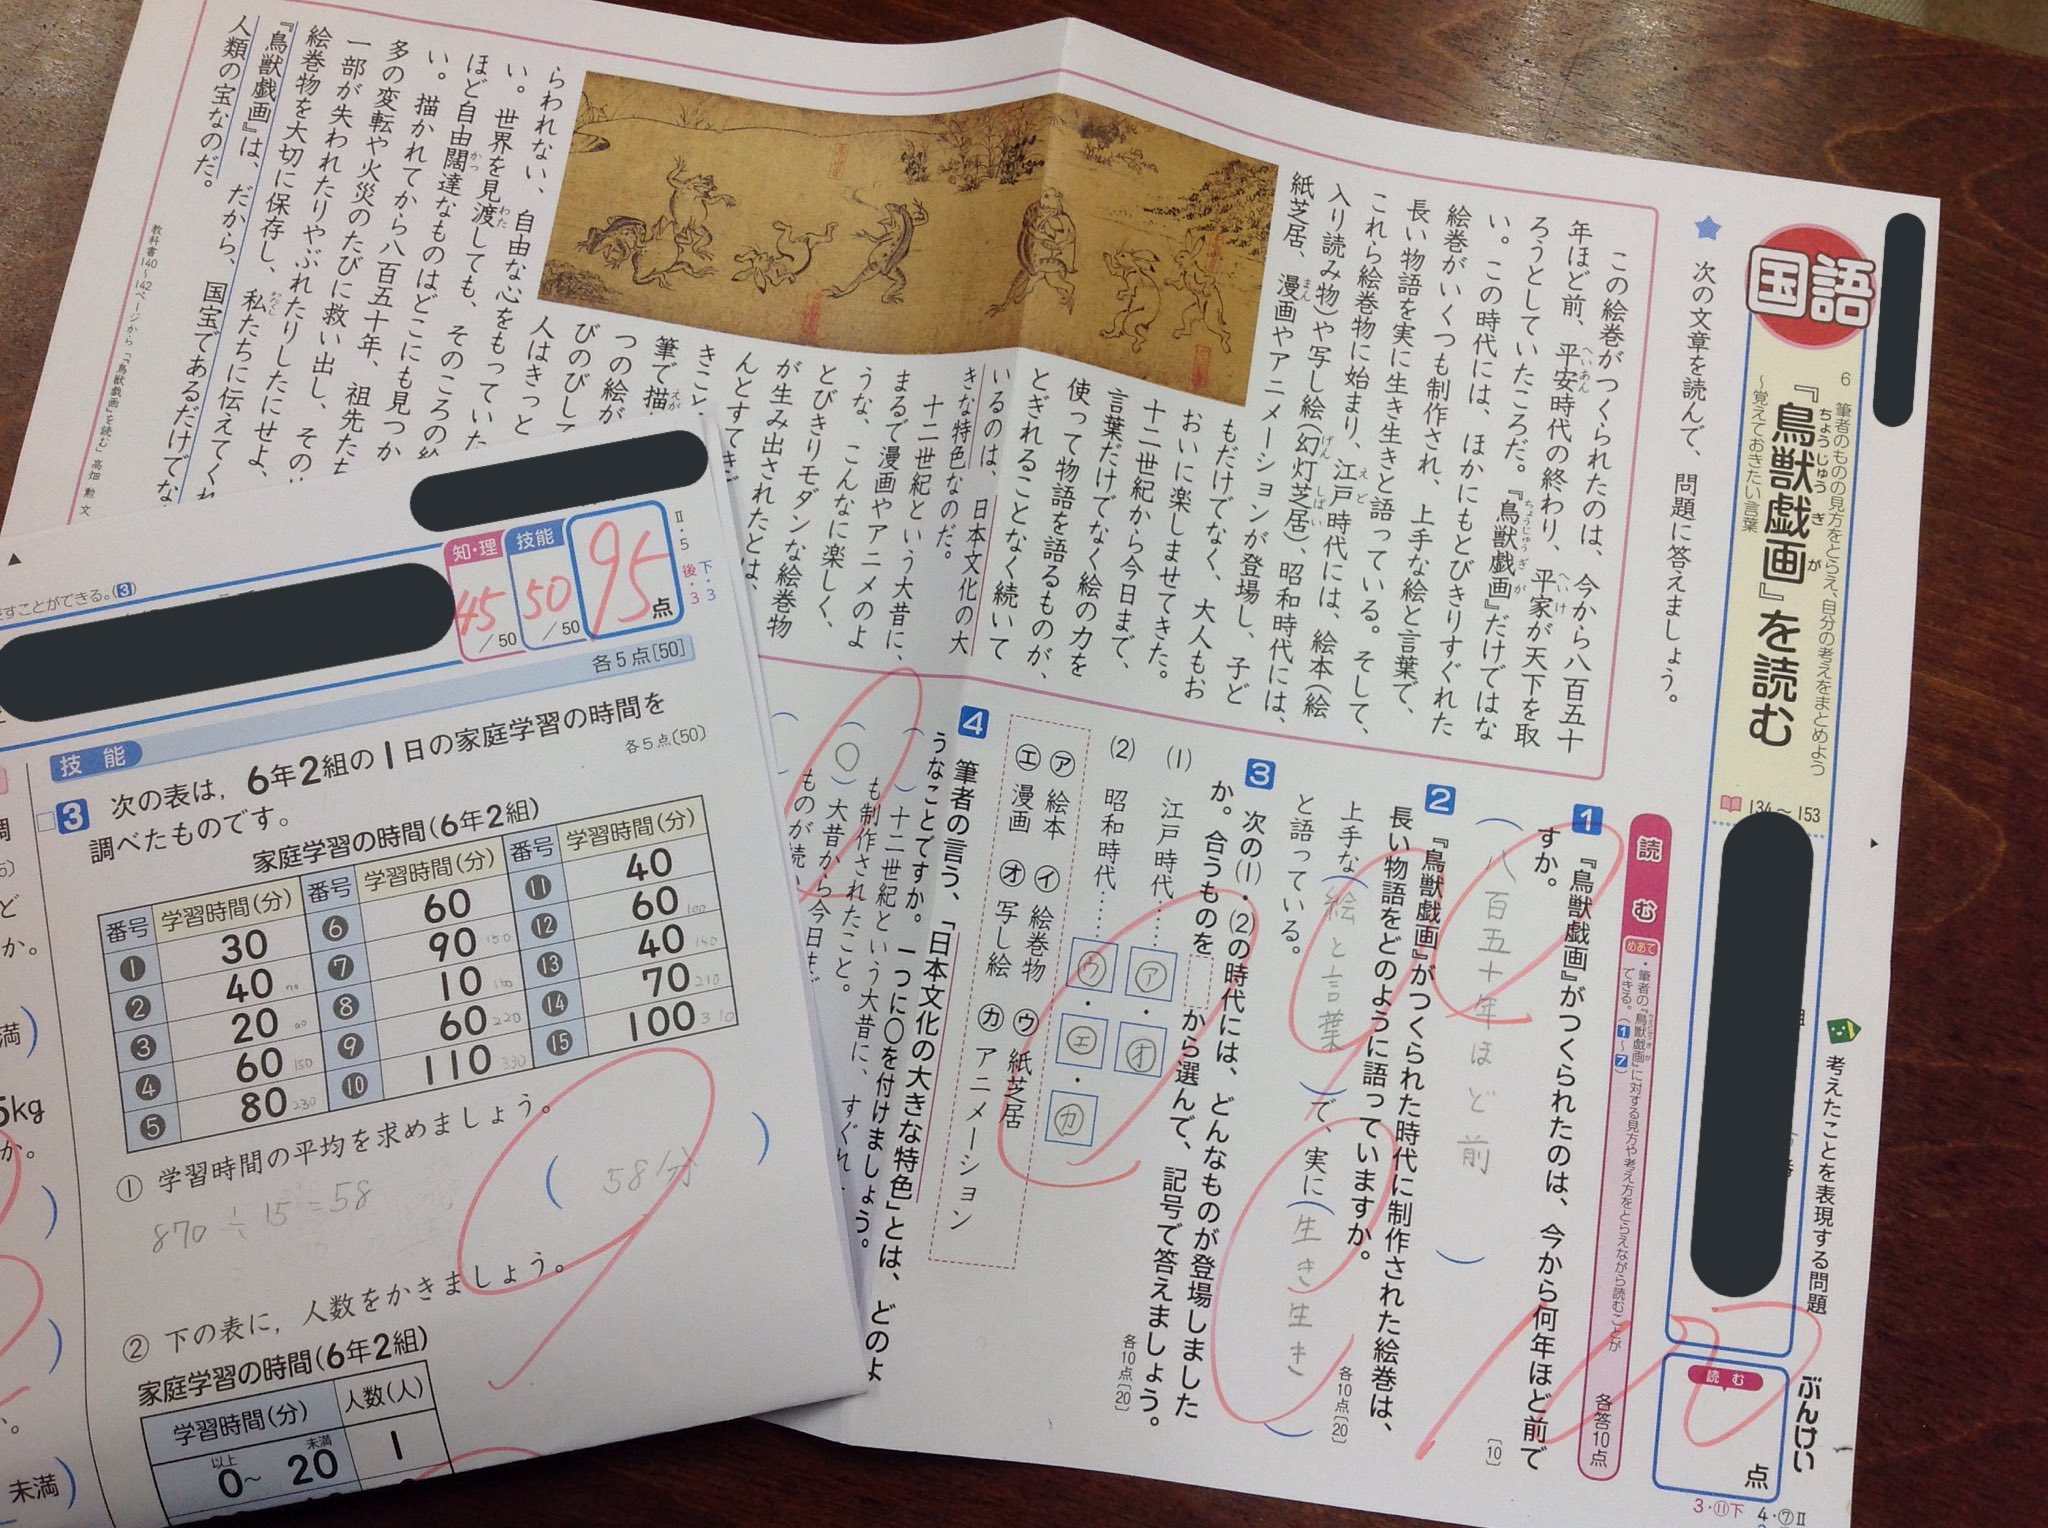 国語
6 筆者のものの見方をとらえ、自分の考えをまとめよう
『鳥獣戯画』を読む
～覚えておきたい言葉
134～153
考えたことを表現する問題
ぶんけい
読む
点
100
3・⑪下 4・⑦Ⅱ
★ 次の文章を読んで、問題に答えましょう。
この絵巻がつくられたのは、今から八百五十
年ほど前、平安時代の終わり、平家が天下を取
ろうとしていたころだ。『鳥獣戯画』だけではな
い。この時代には、ほかにもとびきりすぐれた
絵巻がいくつも制作され、上手な絵と言葉で、
長い物語を実に生き生きと語っている。そして、
これら絵巻物に始まり、江戸時代には、絵本(絵
入り読み物)や写し絵(幻灯芝居)、昭和時代には、
紙芝居、漫画やアニメーションが登場し、子ど
もだけでなく、大人もお
おいに楽しませてきた。
十二世紀から今日まで、
言葉だけでなく絵の力を
使って物語を語るものが、
とぎれることなく続いて
いるのは、日本文化の大
きな特色なのだ。
十二世紀という大昔に、
まるで漫画やアニメのよ
うな、こんなに楽しく、
とびきりモダンな絵巻物
が生み出されたとは、
んとすてき
きこと
筆で描
つの絵が
びのびして
人はきっと
らわれない、自由な心をもっていた
い。世界を見渡しても、そのころの絵
ほど自由闊達なものはどこにも見つか
い。描かれてから八百五十年、祖先たち
多の変転や火災のたびに救い出し、その
一部が失われたりやぶれたりしたにせよ、
絵巻物を大切に保存し、私たちに伝えてくれ
『鳥獣戯画』は、だから、国宝であるだけでな
人類の宝なのだ。
教科書140～142ページから 「『鳥獣戯画』を読む」 高畑 勲 文
読む
めあて ・筆者の『鳥獣戯画』に対する見方や考え方をとらえながら読むことが
できる。(1～7)
各答10点
1 『鳥獣戯画』がつくられたのは、今から何年ほど前で
すか。
[10]
(八百五十年ほど前)
2 『鳥獣戯画』がつくられた時代に制作された絵巻は、
長い物語をどのように語っていますか。
各10点[20]
上手な(絵と言葉)で、実に(生き生き)
と語っている。
3 次の(1)・(2)の時代には、どんなものが登場しました
か。合うものを から選んで、記号で答えましょう。
各10点[20]
(1) 江戸時代……㋐・㋔
(2) 昭和時代……㋒・㋓・㋕
㋐ 絵本 ㋑ 絵巻物 ㋒ 紙芝居
㋓ 漫画 ㋔ 写し絵 ㋕ アニメーション
4 筆者の言う、「日本文化の大きな特色」とは、どのよ
うなことですか。一つに○を付けましょう。
( )十二世紀という大昔に、すぐれ
も制作されたこと。
(○)大昔から今日まで
ものが続い
Ⅱ・5 下・3
後・3
知・理
45/50
技能
50/50
95点
すことができる。(3)
各5点[50]
技能
3 次の表は、6年2組の1日の家庭学習の時間を
調べたものです。
各5点[50]
家庭学習の時間(6年2組)
番号 学習時間(分) 番号 学習時間(分) 番号 学習時間(分)
1 30 6 60 11 40
2 40 7 90 12 60
3 20 8 10 13 40
4 60 9 60 14 70
5 80 10 110 15 100
① 学習時間の平均を求めましょう。
870÷15=58
(58分)
② 下の表に、人数をかきましょう。
家庭学習の時間(6年2組)
学習時間(分) 人数(人)
以上 未満
0～20 1
満)
kg
か。
未満)